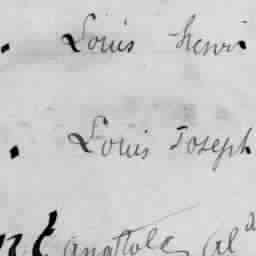 Louis henri
Louis Joseph
anattole al